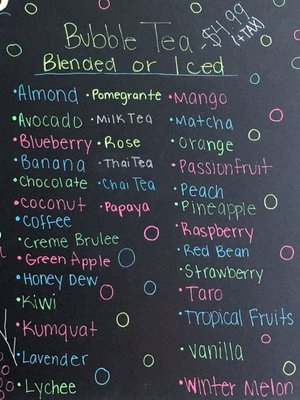 Bubble Tea - $4.99
(+TAX)
Blended or Iced
•Almond
•Avocado
•Blueberry
•Banana
•Chocolate
•Coconut
•Coffee
•Creme Brulee
•Green Apple
•Honey Dew
•Kiwi
•Kumquat
•Lavender
•Lychee
•Pomegrante
•Milk Tea
•Rose
•Thai Tea
•Chai Tea
•Papaya
•Mango
•Matcha
•Orange
•Passionfruit
•Peach
•Pineapple
•Raspberry
•Red Bean
•Strawberry
•Taro
•Tropical Fruits
•Vanilla
•Winter Melon